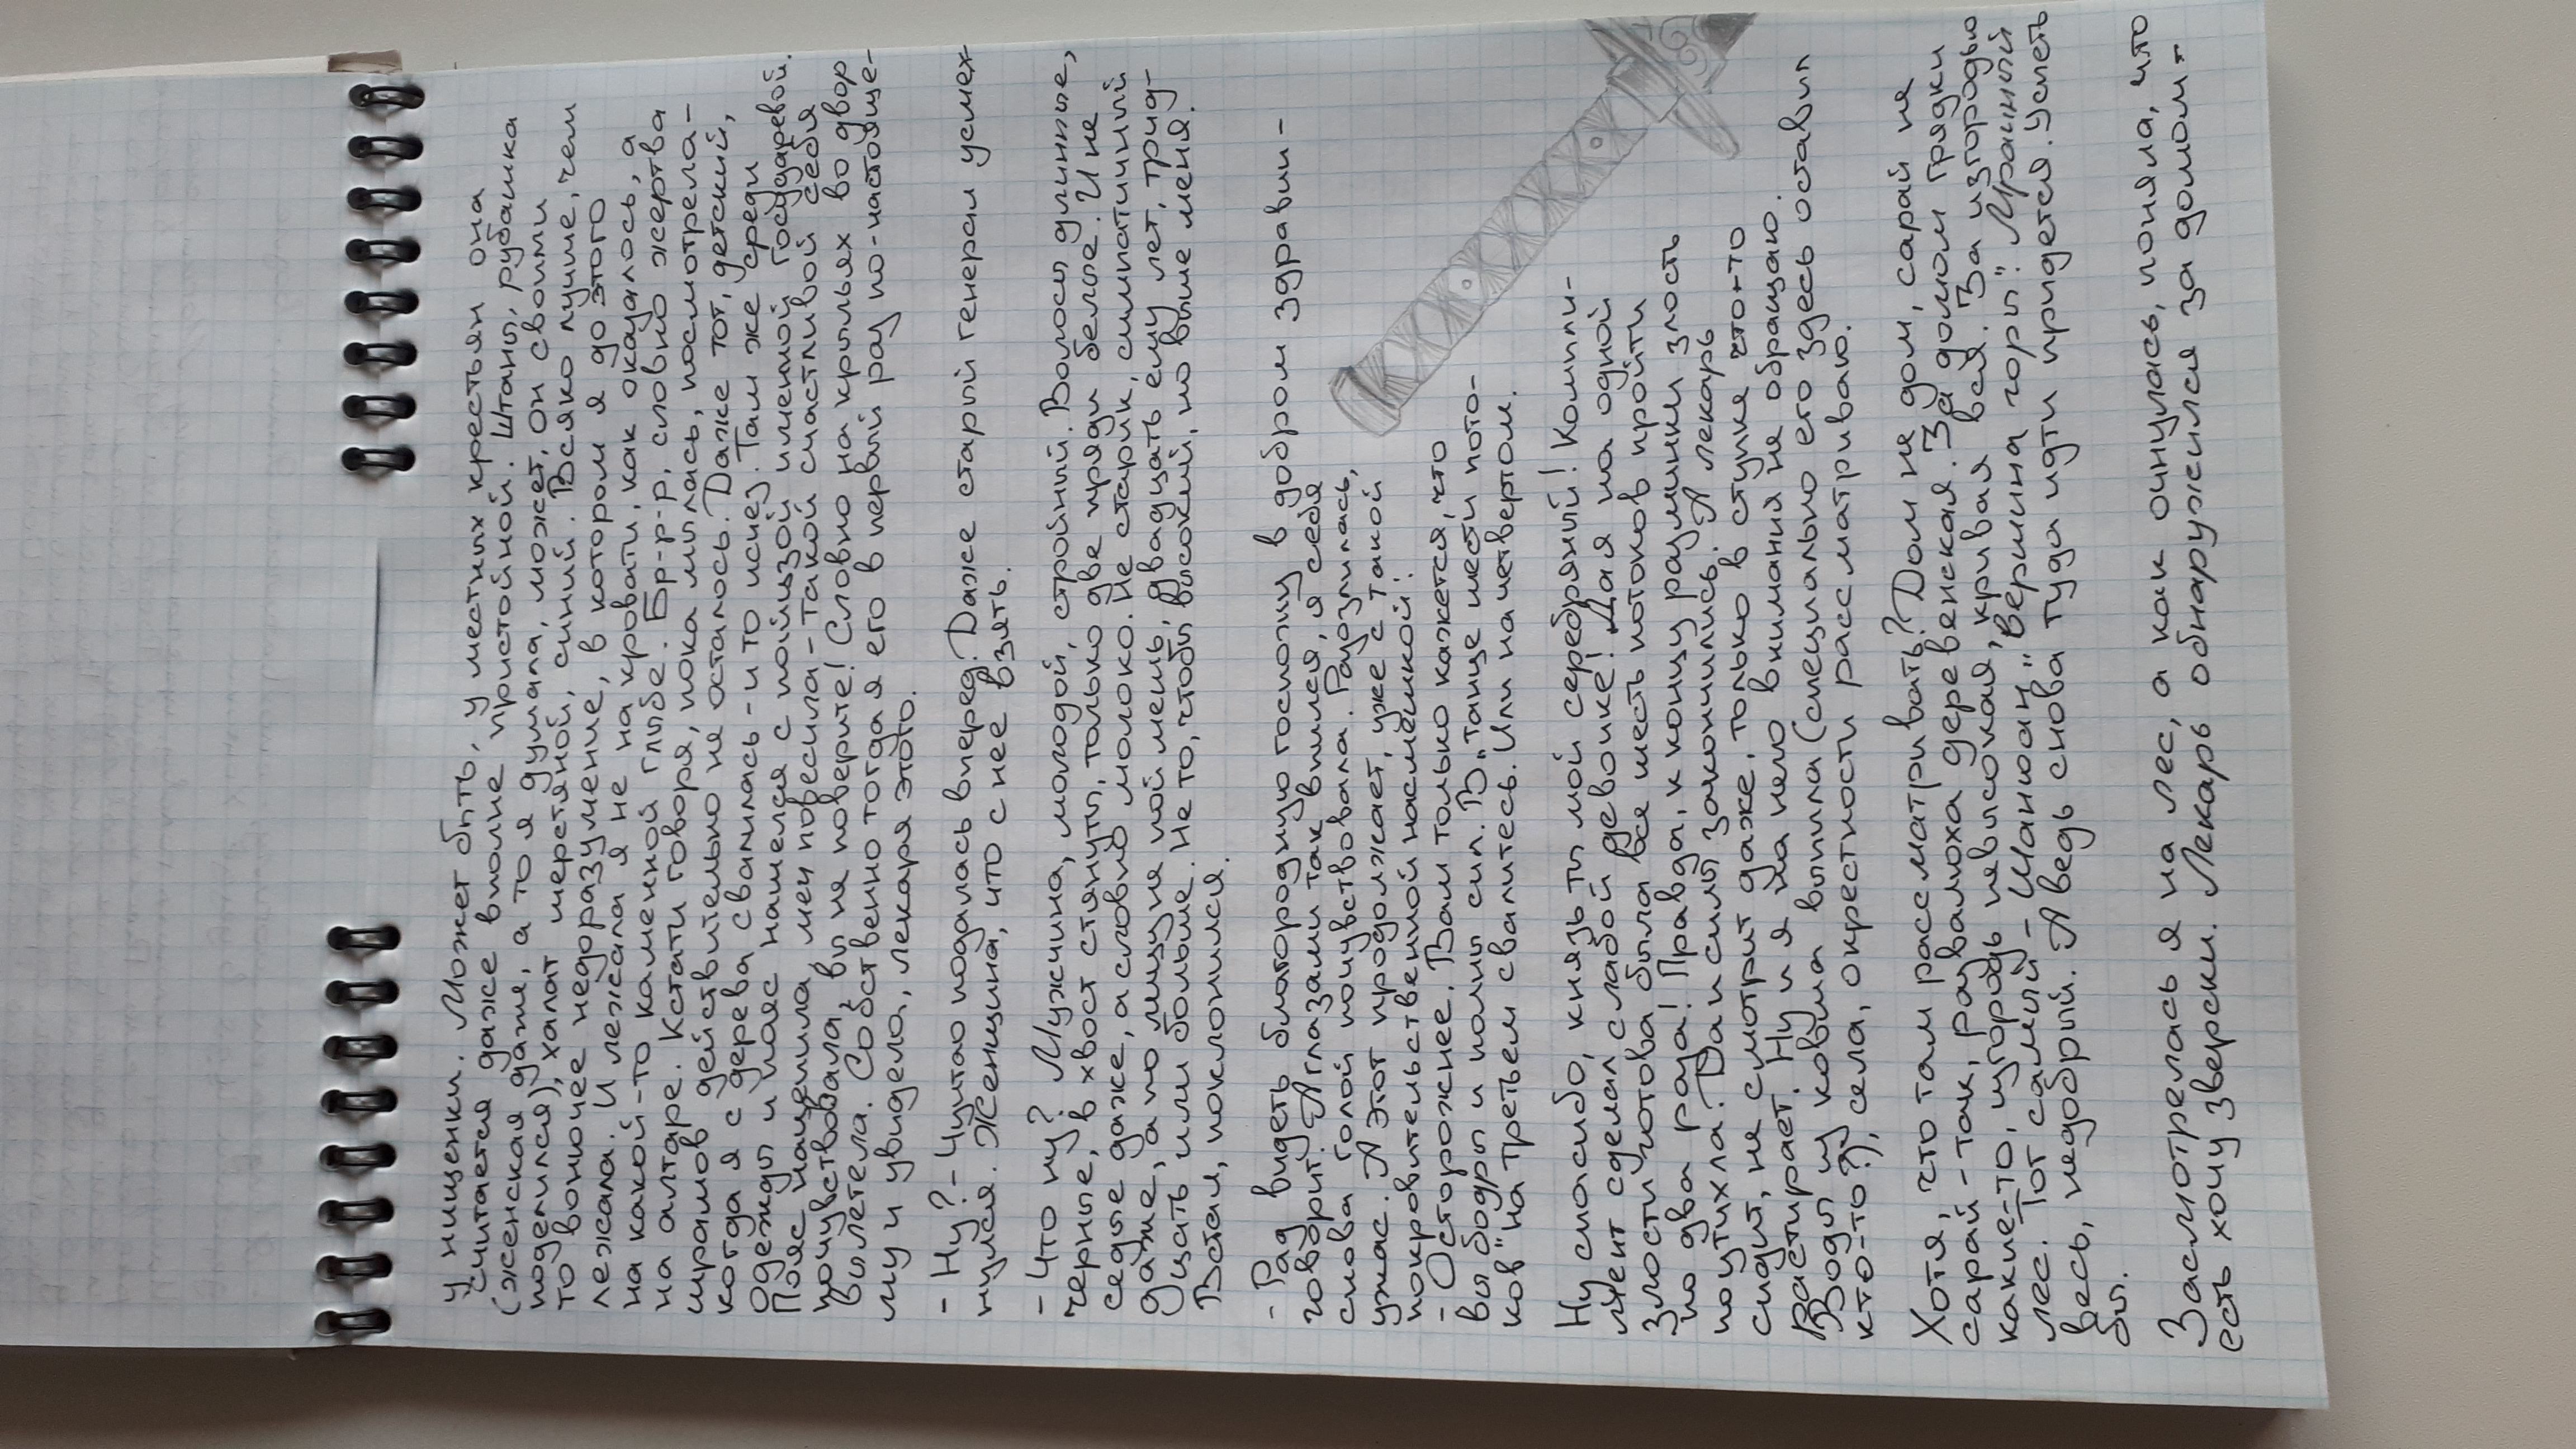 у нищенки. Может быть, у местных крестьян она
считается даже вполне пристойной. Штаны, рубашка
(женская даже, а то я думала, может, он своими
поделился), халат шерстяной, синий. Всяко лучше, чем
то вонючее недоразумение, в котором я до этого
лежала. И лежала я не на кровати, как оказалось, а
на какой-то каменной глыбе. Бр-р-р, словно жертва
на алтаре. Кстати говоря, пока мылась, посмотрела-
шрамов действительно не осталось. Даже тот, детский,
когда я с дерева свалилась - и то исчез. Там же среди
одежды и пояс нашелся с пайцзой именной, Государевой.
Пояс нацепила, меч повесила - такой счастливой себя
почувствовала, вы не поверите! Словно на крыльях во двор
вылетела. Собственно тогда я его в первый раз по-настояще-
му и увидела, лекаря этого.
- Ну? - Чжао подалась вперед. Даже старый генерал усмех-
нулся. Женщина, что с нее взять.
- Что ну? Мужчина, молодой, стройный. Волосы длинные,
черные, в хвост стянуты, только две пряди белые. И не
седые даже, а словно молоко. Не старик, симпатичный
даже, а по лицу не поймешь, двадцать ему лет, трид-
цать или больше. Не то, чтобы высокий, но выше меня.
Встал, поклонился.
- Рад видеть благородную госпожу в добром здравии -
говорит. А глазами так впился, я себя
снова голой почувствовала. Разозлилась,
ужас. А этот продолжает, уже с такой
покровительственной насмешкой:
- Осторожнее. Вам только кажется, что
вы бодры и полны сил. В "танце шести пото-
ков" на третьем свалитесь. Или на четвертом.
Ну спасибо, князь ты мой серебряный! Компли-
мент сделал слабой девочке! Да я на одной
злости готова была все шесть потоков пройти
по два раза! Правда, к концу разминки злость
поутихла. Да и силы закончились. А лекарь
сидит, не смотрит даже, только в ступке что-то
растирает. Ну и я на него внимания не обращаю.
Воды из ковша выпила (специально его здесь оставил
кто-то?), села, окрестности рассматриваю.
Хотя, что там рассматривать? Дом не дом, сарай не
сарай - так, развалюха деревенская. За домом грядки
какие-то, изгородь невысокая, кривая вся. За изгородью
лес. Тот самый - Шанюан, "Вершина горы". Мрачный
весь, недобрый. А ведь снова туда идти придется. Успеть
бы.
Засмотрелась я на лес, а как очнулась, поняла, что
есть хочу зверски. Лекарь обнаружился за домом -